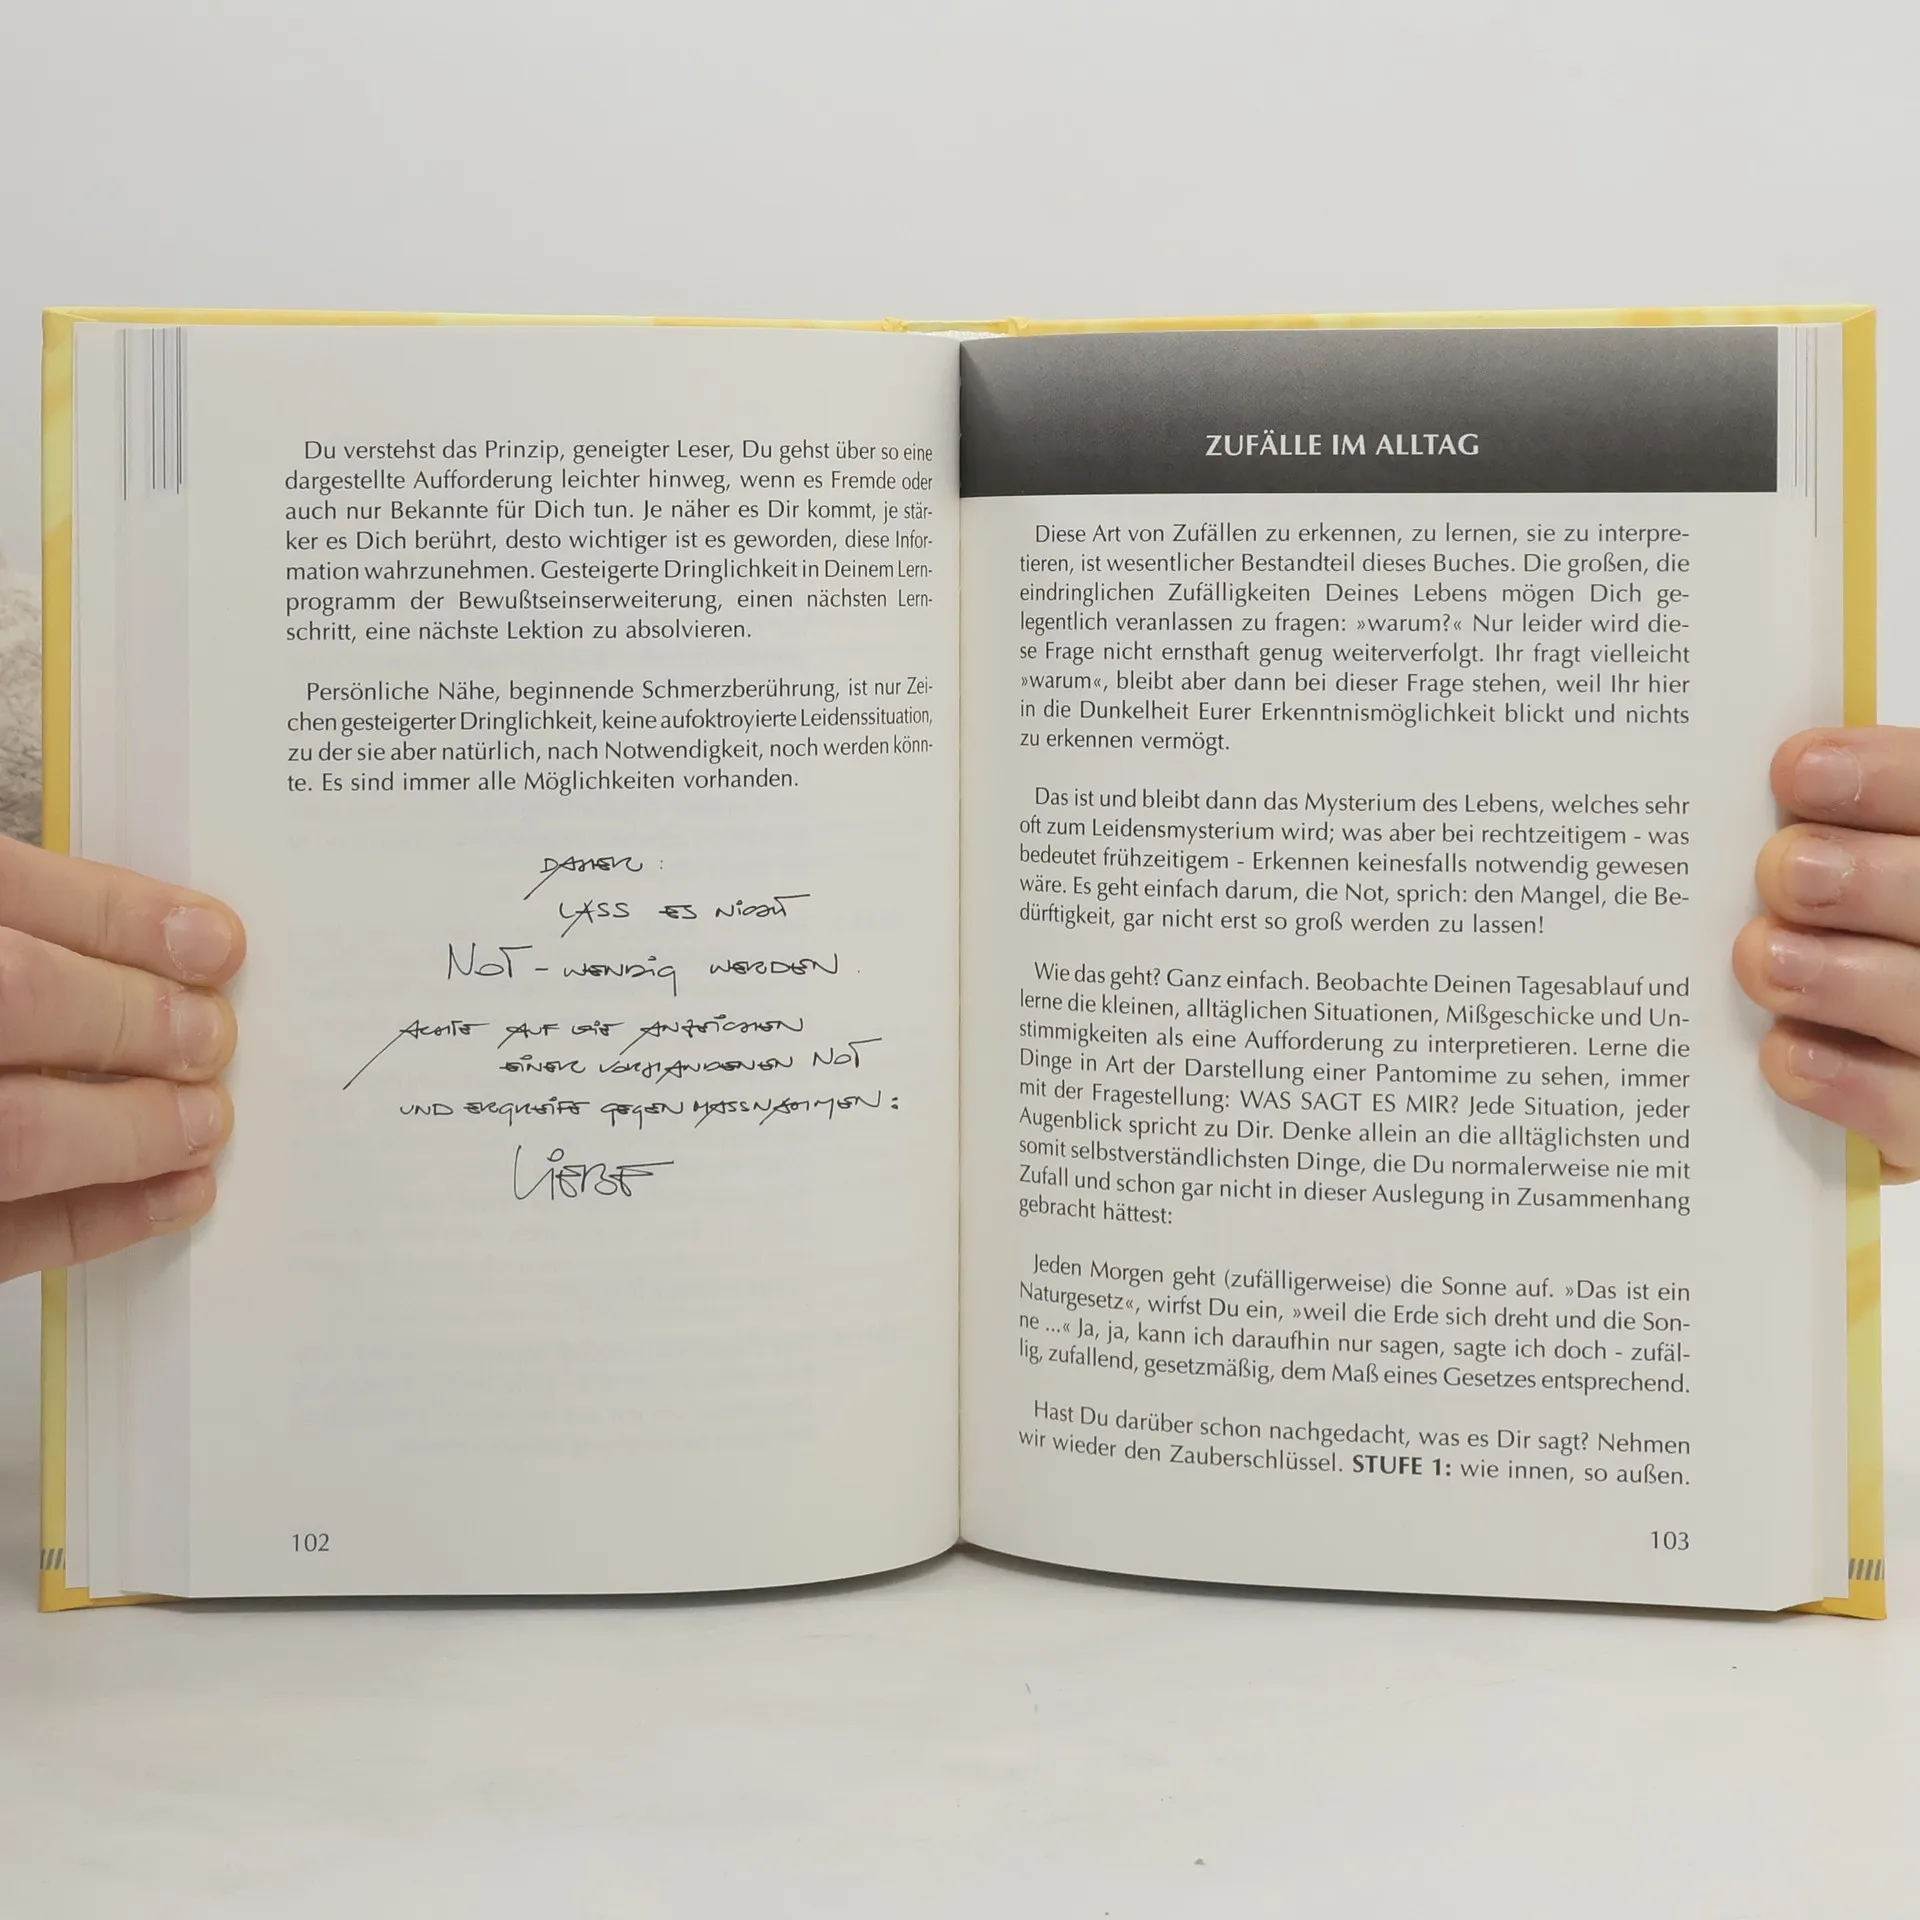 Du verstehst das Prinzip, geneigter Leser, Du gehst über so eine
dargestellte Aufforderung leichter hinweg, wenn es Fremde oder
auch nur Bekannte für Dich tun. Je näher es Dir kommt, je stär-
ker es Dich berührt, desto wichtiger ist es geworden, diese Infor-
mation wahrzunehmen. Gesteigerte Dringlichkeit in Deinem Lern-
programm der Bewußtseinserweiterung, einen nächsten Lern-
schritt, eine nächste Lektion zu absolvieren.
Persönliche Nähe, beginnende Schmerzberührung, ist nur Zei-
chen gesteigerter Dringlichkeit, keine aufoktroyierte Leidenssituation,
zu der sie aber natürlich, nach Notwendigkeit, noch werden könn-
te. Es sind immer alle Möglichkeiten vorhanden.
DAHER:
LASS ES NICHT
NOT - WENDIG WERDEN.
ACHTE AUF DIE ANZEICHEN
EINER VORHANDENEN NOT
UND ERGREIFE GEGEN MASSNAHMEN:
LIEBE
102
ZUFÄLLE IM ALLTAG
Diese Art von Zufällen zu erkennen, zu lernen, sie zu interpre-
tieren, ist wesentlicher Bestandteil dieses Buches. Die großen, die
eindringlichen Zufälligkeiten Deines Lebens mögen Dich ge-
legentlich veranlassen zu fragen: »warum?« Nur leider wird die-
se Frage nicht ernsthaft genug weiterverfolgt. Ihr fragt vielleicht
»warum«, bleibt aber dann bei dieser Frage stehen, weil Ihr hier
in die Dunkelheit Eurer Erkenntnismöglichkeit blickt und nichts
zu erkennen vermögt.
Das ist und bleibt dann das Mysterium des Lebens, welches sehr
oft zum Leidensmysterium wird; was aber bei rechtzeitigem - was
bedeutet frühzeitigem - Erkennen keinesfalls notwendig gewesen
wäre. Es geht einfach darum, die Not, sprich: den Mangel, die Be-
dürftigkeit, gar nicht erst so groß werden zu lassen!
Wie das geht? Ganz einfach. Beobachte Deinen Tagesablauf und
lerne die kleinen, alltäglichen Situationen, Mißgeschicke und Un-
stimmigkeiten als eine Aufforderung zu interpretieren. Lerne die
Dinge in Art der Darstellung einer Pantomime zu sehen, immer
mit der Fragestellung: WAS SAGT ES MIR? Jede Situation, jeder
Augenblick spricht zu Dir. Denke allein an die alltäglichsten und
somit selbstverständlichsten Dinge, die Du normalerweise nie mit
Zufall und schon gar nicht in dieser Auslegung in Zusammenhang
gebracht hättest:
Jeden Morgen geht (zufälligerweise) die Sonne auf. »Das ist ein
Naturgesetz«, wirfst Du ein, »weil die Erde sich dreht und die Son-
ne ...« Ja, ja, kann ich daraufhin nur sagen, sagte ich doch - zufäl-
lig, zufallend, gesetzmäßig, dem Maß eines Gesetzes entsprechend.
Hast Du darüber schon nachgedacht, was es Dir sagt? Nehmen
wir wieder den Zauberschlüssel. STUFE 1: wie innen, so außen.
103